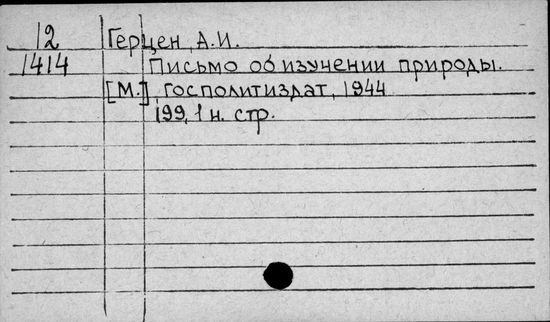 12 Герцен, А.И.
1414 Письмо об изучении природы.
[М.] Госполитиздат, 1944
199, 1 н. стр.